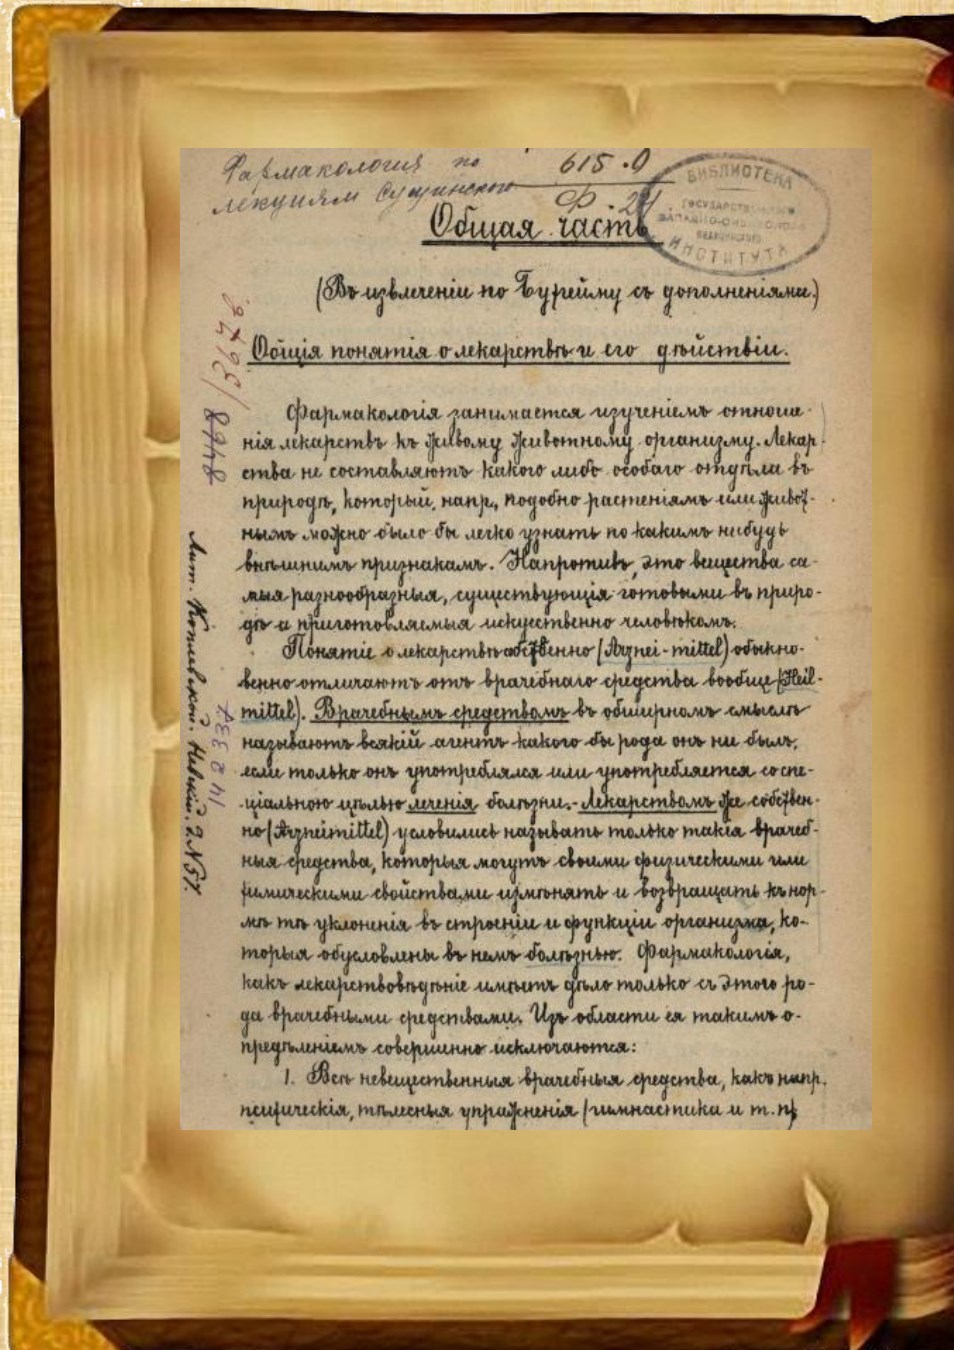 Фармакологія по
лекціям Сущинского
615.0
Ф.24
БИБЛИОТЕКА
ГОСУДАРСТВЕННОГО
ИНСТИТУТА
Общая часть
(Въ извлеченіи по Бухгейму съ дополненіями.)
Общія понятія о лекарствѣ и его дѣйствіи.
Фармакологія занимается изученіемъ отноше-
нія лекарствъ къ живому животному организму. Лекар-
ства не составляютъ какого либо особаго отдѣла въ
природѣ, который, напр., подобно растеніямъ или живот-
нымъ можно было бы легко узнать по какимъ нибудь
внѣшнимъ признакамъ. Напротивъ, это вещества са-
мыя разнообразныя, существующія готовыми въ приро-
дѣ и приготовляемыя искуственно человѣкомъ.
Понятіе о лекарствѣ собственно (Arznei-mittel) обыкно-
венно отличаютъ отъ врачебнаго средства вообще (Heil-
mittel). Врачебнымъ средствомъ въ обширномъ смыслѣ
называютъ всякій агентъ какого бы рода онъ ни былъ,
если только онъ употреблялся или употребляется со спе-
ціальною цѣлью леченія болѣзни.- Лекарствомъ же собствен-
но (Arzneimittel) условились называть только такія врачеб-
ныя средства, которыя могутъ своими физическими или
химическими свойствами измѣнять и возвращать къ нор-
мѣ тѣ уклоненія въ строеніи и функціи организма, ко-
торыя обусловлены въ немъ болѣзнью. Фармакологія,
какъ лекарствовѣдѣніе имѣетъ дѣло только съ этого ро-
да врачебными средствами. Изъ области ея такимъ о-
предѣленіемъ совершенно исключаются:
1. Всѣ невещественныя врачебныя средства, какъ напр.
психическія, тѣлесныя упражненія (гимнастика и т.п.)